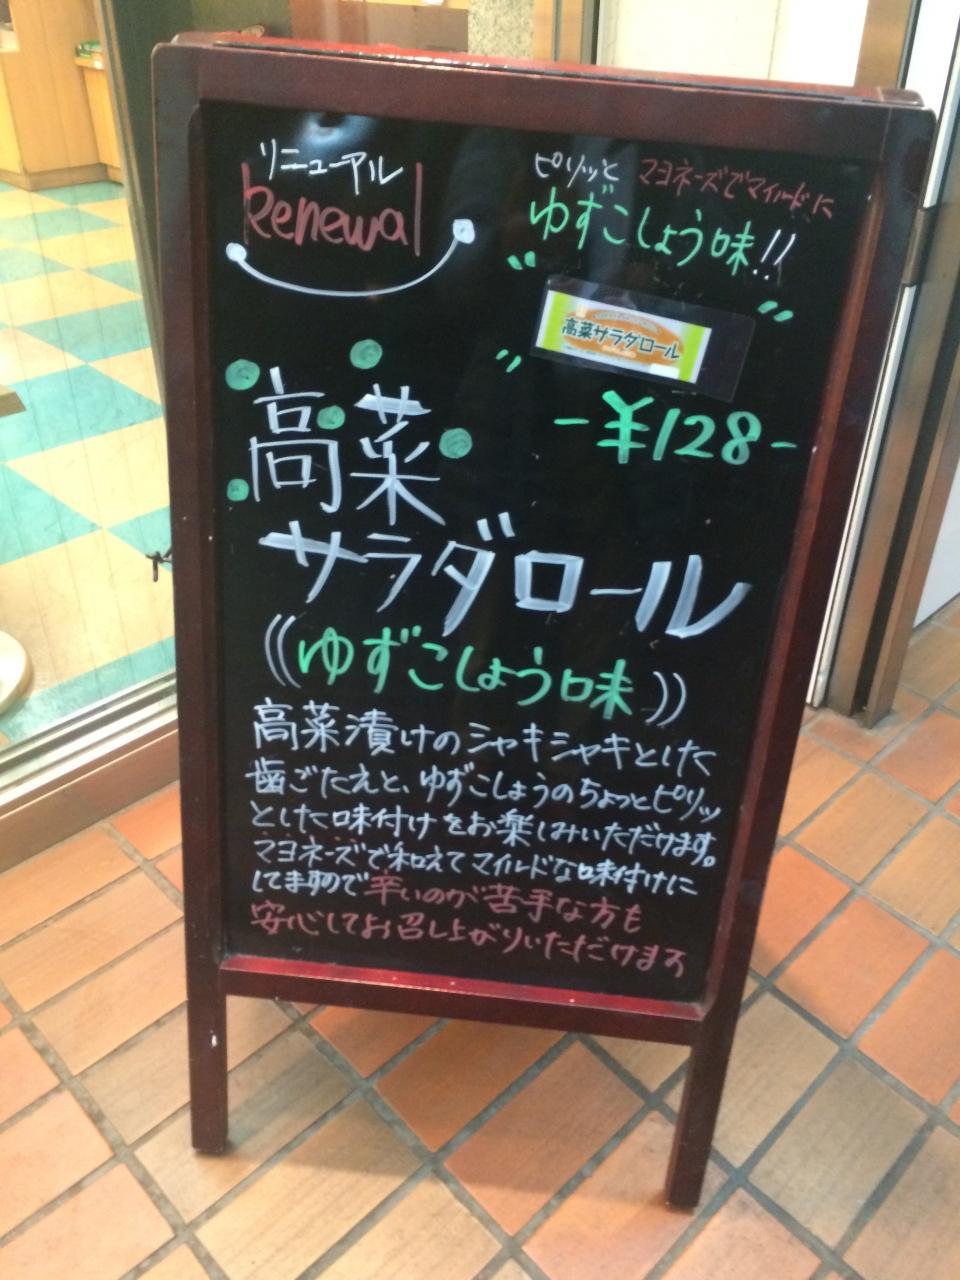 リニューアル
Renewal
ピリッと マヨネーズでマイルドに
ゆずこしょう味!!
高菜サラダロール
-¥128-
高菜
サラダロール
((ゆずこしょう味))
高菜漬けのシャキシャキとした
歯ごたえと、ゆずこしょうのちょっとピリッ
とした味付けをお楽しみいただけます。
マヨネーズで和えてマイルドな味付けに
してますので辛いのが苦手な方も
安心してお召し上がりいただけます